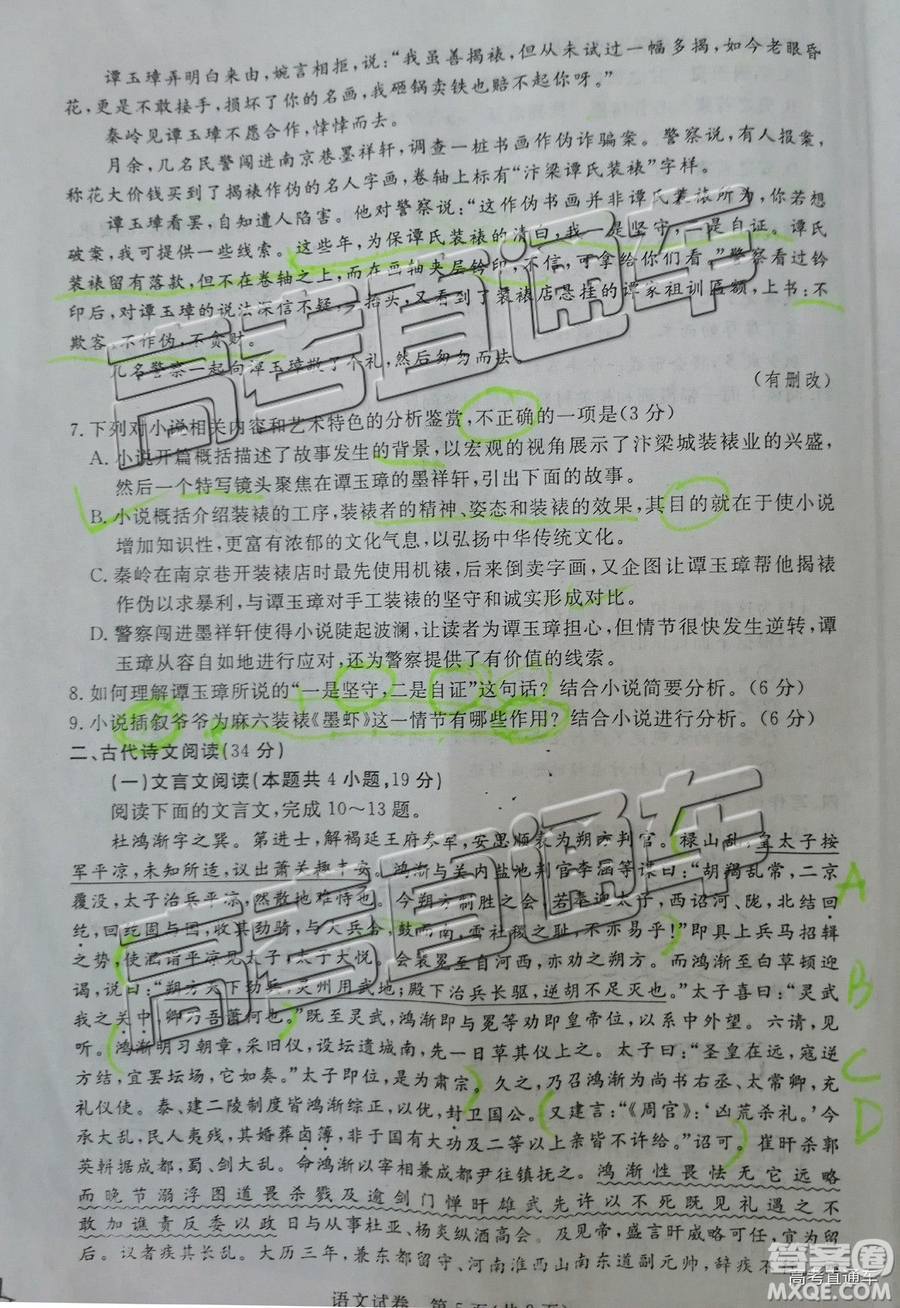 谭玉璋弄明白来由,婉言相拒,说:“我虽善揭裱,但从未试过一幅多揭,如今老眼昏
花,更是不敢接手,损坏了你的名画,我砸锅卖铁也赔不起你呀。”
秦岭见谭玉璋不愿合作,悻悻而去。
月余,几名民警闯进南京巷墨祥轩,调查一桩书画作伪诈骗案。警察说,有人报案,
称花大价钱买到了揭裱作伪的名人字画,卷轴上标有“汴梁谭氏装裱”字样。
谭玉璋看罢,自知遭人陷害。他对警察说:“这作伪书画并非谭氏装裱所为,你若想
破案,我可提供一些线索。这些年,为保谭氏装裱的清白,我一是坚守,二是自证。谭氏
装裱留有落款,但不在卷轴之上,而在画轴夹层钤印,不信,可拿给你们看。”警察看过钤
印后,对谭玉璋的说法深信不疑,一抬头,又看到了装裱店悬挂的谭家祖训匾额,上书:不
欺客,不诈伪,不贪财。
几名警察一起向谭玉璋敬了个礼,然后匆匆而去。
(有删改)
7.下列对小说相关内容和艺术特色的分析鉴赏,不正确的一项是(3分)
A.小说开篇概括描述了故事发生的背景,以宏观的视角展示了汴梁城装裱业的兴盛,
然后一个特写镜头聚焦在谭玉璋的墨祥轩,引出下面的故事。
B.小说概括介绍装裱的工序,装裱者的精神、姿态和装裱的效果,其目的就在于使小说
增加知识性,更富有浓郁的文化气息,以弘扬中华传统文化。
C.秦岭在南京巷开装裱店时最先使用机裱,后来倒卖字画,又企图让谭玉璋帮其揭裱
作伪以求暴利,与谭玉璋对手工装裱的坚守和诚实形成对比。
D.警察闯进墨祥轩使得小说陡起波澜,让读者为谭玉璋担心,但情节很快发生逆转,谭
玉璋从容自如地进行应对,还为警察提供了有价值的线索。
8.如何理解谭玉璋所说的“一是坚守,二是自证”这句话?结合小说简要分析。(6分)
9.小说插叙爷爷为麻六装裱《墨虾》这一情节有哪些作用?结合小说进行分析。(6分)
二、古代诗文阅读(34分)
(一)文言文阅读(本题共4小题,19分)
阅读下面的文言文,完成10~13题。
杜鸿渐字之巽。第进士,解褐延王府参军,安思顺表为朔方判官。禄山乱,皇太子按
军平凉,未知所适,议出萧关趣丰安。鸿渐与关内盐池判官李涵等谋曰:“胡羯乱常,二京
覆没,太子治兵平凉,然散地难恃也。今朔方制胜之会,若奉迎太子,西诏河、陇,北结回
纥,回纥固与国,收其劲骑,与大兵合,鼓而南,雪社稷之耻,不亦易乎!”即具上兵马招辑
之势,使涵诣平凉见太子,太子大悦。会裴冕至自河西,亦劝之朔方。而鸿渐至白草顿迎
谒,说曰:“朔方天下劲兵,灵州用武地;殿下治兵长驱,逆胡不足灭也。”太子喜曰:“灵武
我之关中,卿乃吾萧何也。”既至灵武,鸿渐即与冕等劝即皇帝位,以系中外望。六请,见
听。鸿渐明习朝章,采旧仪,设坛遗城南,先一日草其仪上之。太子曰:“圣皇在远,寇逆
方结,宜罢坛场,它如奏。”太子即位,是为肃宗。久之,乃召鸿渐为尚书右丞、太常卿,充
礼仪使。泰、建二陵制度皆鸿渐综正,以优,封卫国公。又建言:“《周官》:‘凶荒杀礼。’今
承大乱,民人夷残,其婚葬卤簿,非于国有大功及二等以上亲皆不许给。”诏可。崔旰杀郭
英斡据成都,蜀、剑大乱。命鸿渐以宰相兼成都尹往镇抚之。鸿渐性畏怯无它远略
而晚节溺浮图道畏杀戮及逾剑门惮旰雄武先许以不死既见礼遇之不
敢加谯责反委以政日与从事杜亚、杨炎纵酒高会。及见帝,盛言旰威略可任,宜为留
后。议者疾其长乱。大历三年,兼东都留守、河南淮西山南东道副元帅,辞疾不行
语文试卷 第5页(共8页)
高考直通车
高考直通车
答案圈
高考直通车
MXQE.COM
A
B
C
D